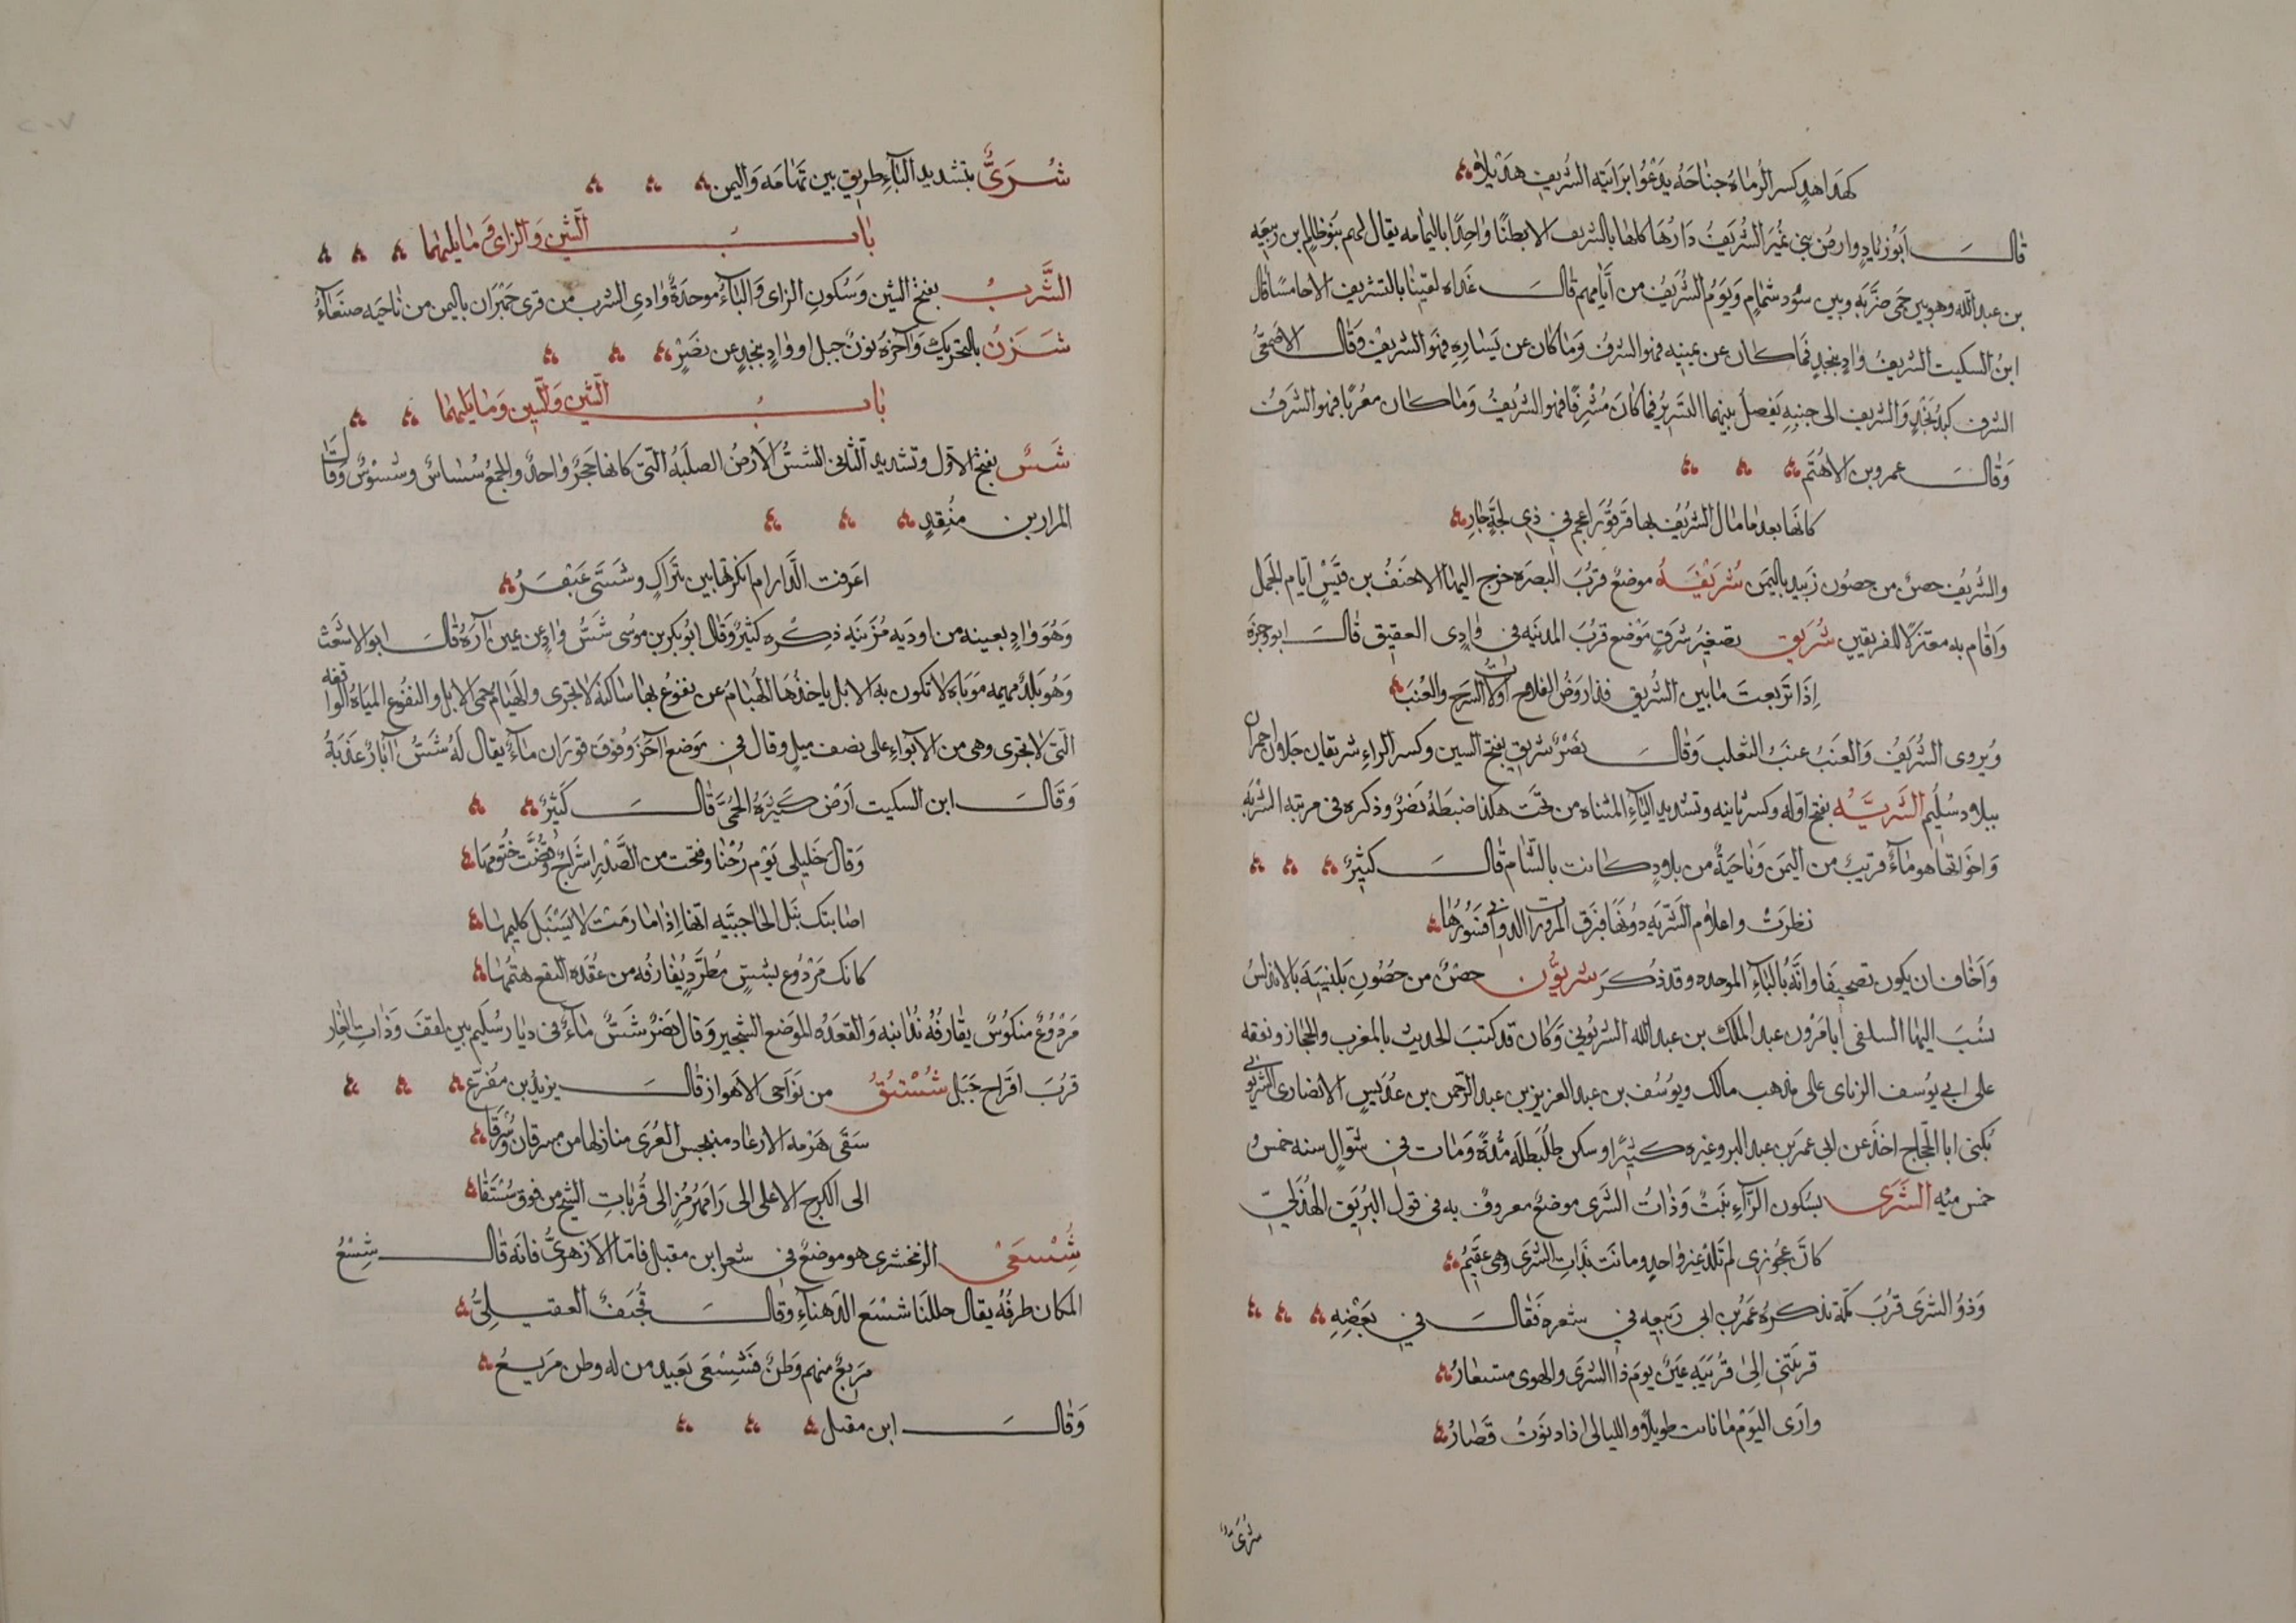 كهداهدٍ كسر الرماة جناحه يدعوا برابية الشريف هديلا
قال ابوزيادٍ وارض بني نمير الشريف دارها كلها بالشريف الا بطنًا واحدًا باليمامه يقال لهم بنو ظالم بن ربيعه
بن عبدالله وهو بين حمى ضرّيه وبين سُود شمامٍ ويوم الشريف من ايامهم قال غداه لقينا بالشريف الاحامسا قال
ابن السكيت الشريف وادٍ بنجدٍ فما كان عن يمينه فهو الشرف وما كان عن يساره فهو الشريف وقال الاصمعي
الشرف كبد نجدٍ والشريف الى جنبه يفصل بينهما التسرير فما كان مشرقًا فهو الشريف وما كان مغربًا فهو الشرف
وقال عمرو بن الاهتم
كانها بعد ما مال الشريف بها قرقور اعجم في ذي لجةٍ جارِ
والشريف حصن من حصون زبيد باليمن شريفه موضع قرب البصره خرج اليها الاحنف بن قيس ايام الجمل
واقام به معتزلًا للفريقين شريق تصغير شرقٍ موضع قرب المدينه في وادي العقيق قال ابو وجزة
اذا تربعت ما بين الشريق فذا روض الفلاح اولات السرح والعُنَبَ
ويروى الشريف والعنب عنب الثعلب وقال نصر شريق بفتح الشين وكسر الراء شريقان جبلان احمران
ببلاد سُلَيم الشَريَّه بفتح اوله وكسر ثانيه وتشديد الياء المثناه من تحت هكذا ضبطه نصر وذكره في مرتبه الشربه
واخواتها هو ماء قريب من اليمن وناحية من بلادٍ كانت بالشام قال كثير
نظرت واعلام الشريه دونها فبرق المرورات الدواني فسورها
واخاف ان يكون تصحيفا وانه بالباء الموحده وقد ذكر شريون حصن من حصون بلنسية بالاندلس
نسب اليها السلفي ابا مروان عبدالملك بن عبدالله الشريوني وكان قد كتب الحديث بالمغرب والحجاز وتفقه
على ابي يوسف الزناى على مذهب مالك ويوسف بن عبدالعزيز بن عبدالرحمن بن عديس الانصارى الشريوني
يكنى ابا الحجاج اخذ عن ابي عمر بن عبدالبر وغيره كثيرًا وسكن طليطله مدةً ومات في شوال سنه خمس
خمس ميه الشرى بسكون الراء نبت وذات الشرى موضع معروف به في قول البريق الهذلي
كان عجوزى لم تلد غير واحدٍ وماتت بذات الشرى وهى عقيم
وذو الشرى قرب مكة ذكره عمر بن ابى ربيعه في شعره فقال في بعضه
قربتني الى قريبة عين يوم ذا الشرى والهوى مستعار
وارى اليوم ما ناىت طويلًا والليالى اذا دنوت قصار
شرىّ
شرىّ بتشديد الياء طريق بين تهامه واليمن
باب الشين والزاى وما يليهما
الشزب بفتح الشين وسكون الزاى والباء موحدة وادى الشزب من قرى جهران باليمن من ناحيه صنعاء
شزن بالتحريك وآخره نون جبل او وادٍ بنجدٍ عن نصرٍ
باب الشين والسين وما يليهما
شسٌ بفتح الاول وتشديد الثانى الشس الارض الصلبه التي كانها حجر واحد والجمع شساس وشسوس وقال
المرار بن منقذٍ
اعرفت الدار ام انكرتها بين تبراكٍ وشسّى عبقر
وهو وادٍ بعينه من اوديه مُزينه ذكره كثير وقال ابو بكر بن موسى شس وادٍ عن يمين آره قال ابو الاشعث
وهو بلد مهيمه موباة لا تكون به الابل ياخذها الهيام عن نقوع بها ساكنة لا تجرى والهيام حمى الابل والنقوع المياه الواقفه
التى لا تجرى وهى من الابواء على نصف ميل وقال في موضع آخر وفوق قوران ماء يقال له شس آبار عذبة
وقال ابن السكيت ارض كثيره الحمى قال كثير
وقال خليلي يوم رُحنا وفتحت من الصدر اشراج وفضّت ختومها
اصابتك نبل الحاجبيه انها اذا ما رمت لا يستبل كليمها
كانك مردوع بشسٍ مُطرّدٍ يقارفه من عُقده النقع هيمها
مردوع منكوس يقارفه يدانيه والعقده الموضع الشجير وقال نصر شس ماء فى ديار سليم بين لقف وذات الغار
قرب اقراح جبل شستق من نواحى الاهواز قال يزيد بن مفرّع
سقى هزمه الارعاد منبجس العُرى منازلها من مسرقان وسُرّقا
الى الكربج الاعلى الى رامهرمزٍ الى قريات الشيخ من فوق شستقا
شسعى الزمخشرى هو موضع في شعر ابن مقبل فاما الازهرى فانه قال شسع
المكان طرفه يقال حللنا شسع الدهناء وقال قحيف العقيلى
مربع منهم وطن فشسعى بعيد من له وطن مريع
وقال ابن مقبل